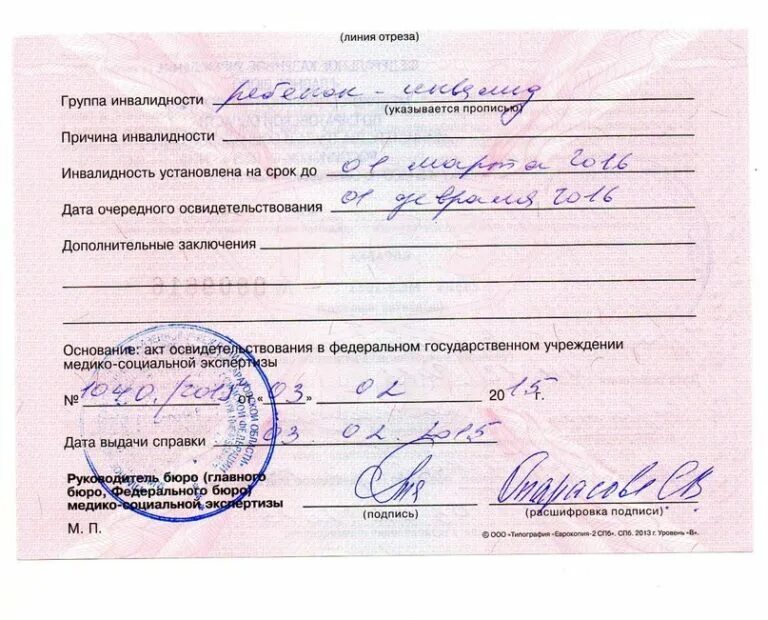 (линия отреза)
Группа инвалидности ребёнок - инвалид
(указывается прописью)
Причина инвалидности
Инвалидность установлена на срок до 01 марта 2016
Дата очередного освидетельствования 01 февраля 2016
Дополнительные заключения
Основание: акт освидетельствования в федеральном государственном учреждении
медико-социальной экспертизы
№ 1040./2015 от «03» 02 2015 г.
Дата выдачи справки 03.02.2015
Руководитель бюро (главного
бюро, Федерального бюро)
медико-социальной экспертизы
Тарасова С В
(подпись) (расшифровка подписи)
М. П.
© ООО «Типография «Еврокопия-2 СПб». СПб. 2013 г. Уровень «В».